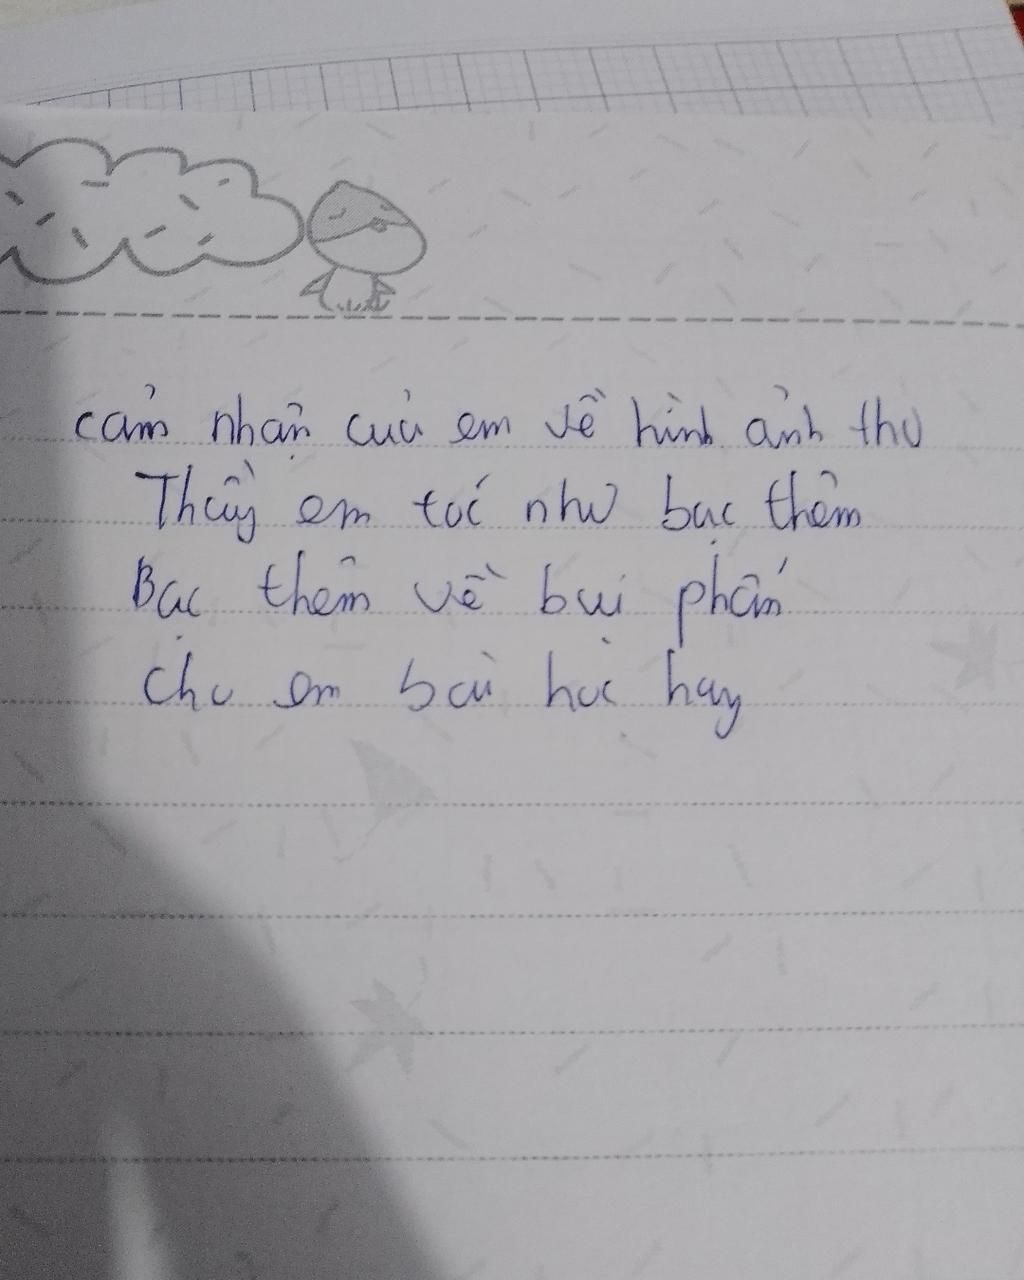 cảm nhận của em về hình ảnh thơ
Thầy em tóc như bạc thêm
Bạc thêm về bụi phấn
Cho em bài học hay